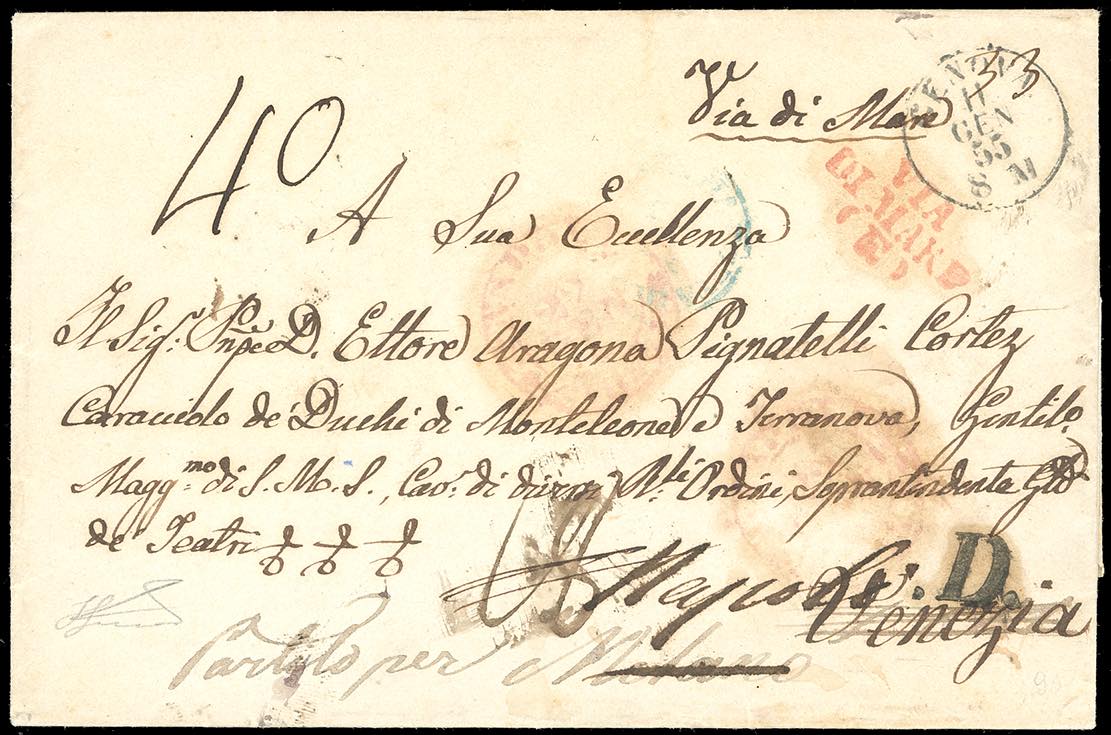 33
Via di Mare
GENOVA
11
GEN
55
8 M
40
VIA
DI MARE
(E)
A Sua Eccellenza
Il Sig.r Pnpe D. Ettore Aragona Pignatelli Cortez
Caracciolo de' Duchi di Monteleone e Terranova, Gentilo.
Magg.mo di S. M. S., Cav.r di diversi R.li Ordini, Soprantendente Gle
de' Teatri
P.D.
Napoli
Venezia
Partito per Milano